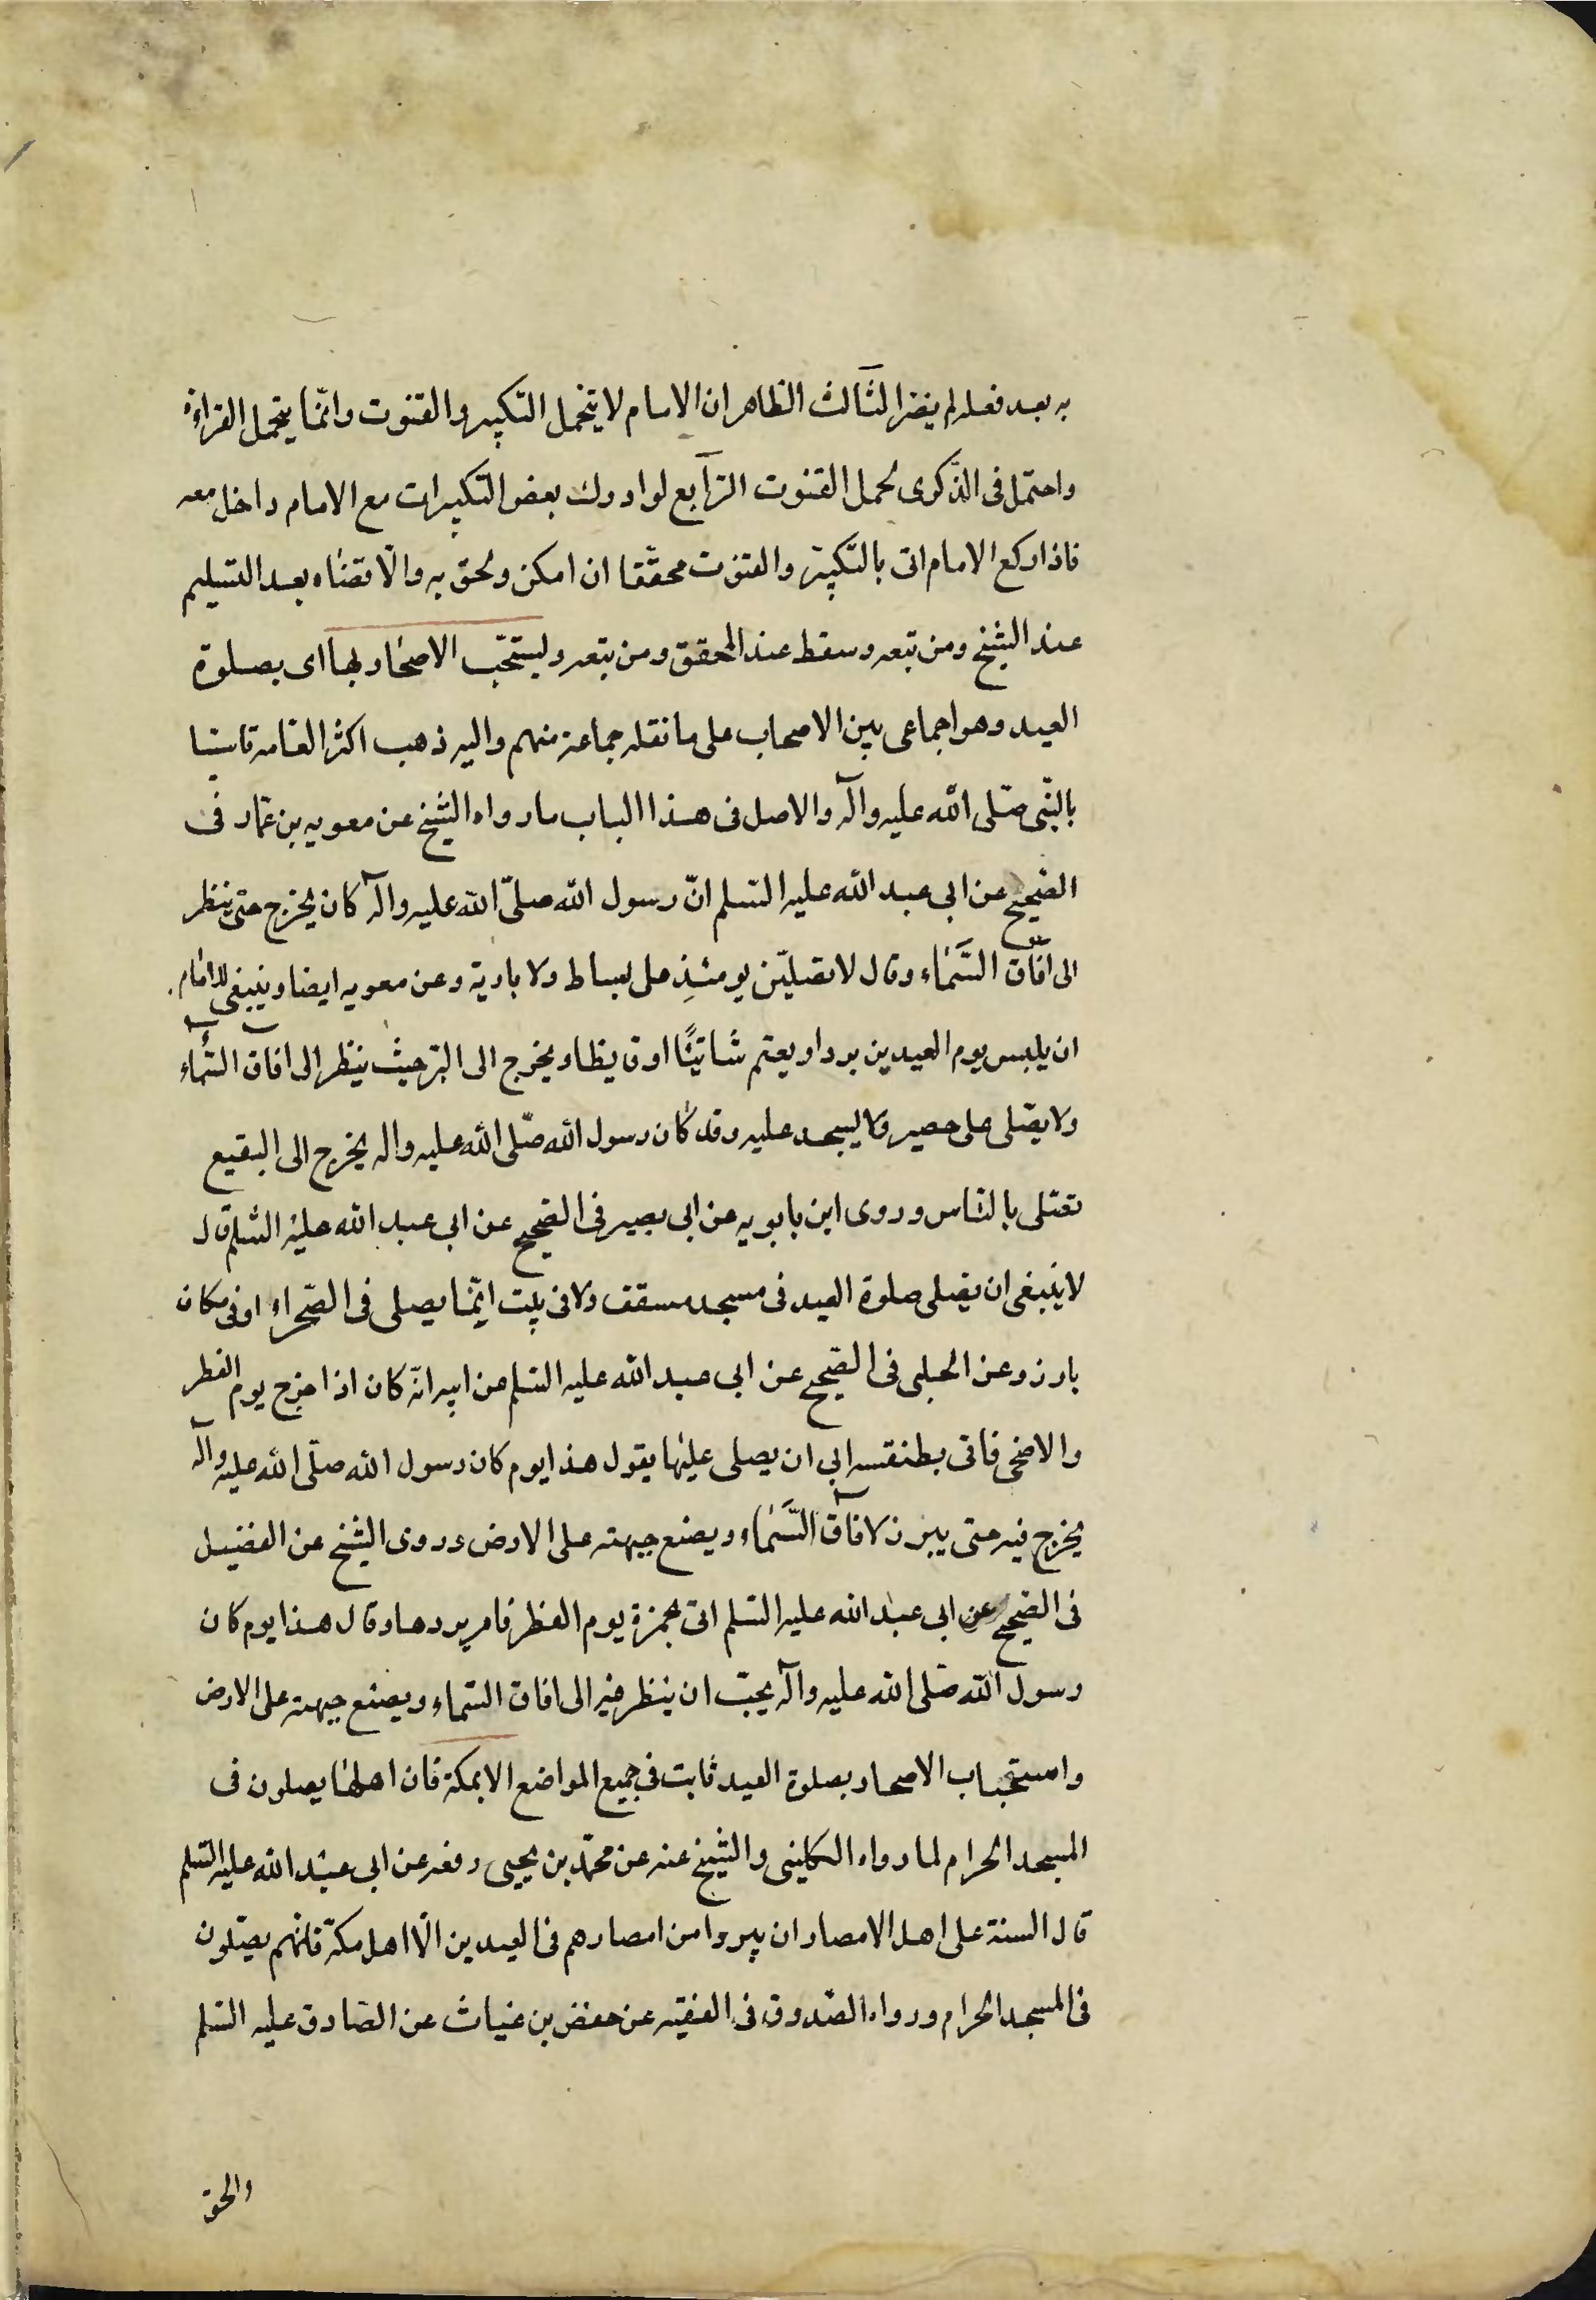 به بعد فعله لم يضر الثالث الظاهر ان الامام لا يتحمل التكبير والقنوت وانما يتحمل القراءة
واحتمل فى الذكرى تحمل القنوت الرابع لو ادرك بعض التكبيرات مع الامام داخل معه
فاذا ركع الامام اتى بالتكبير والقنوت مخففا ان امكن ولحق به والا قضاه بعد التسليم
عند الشيخ ومن تبعه وسقط عند المحقق ومن تبعه وليستحب الاصحار بها اى بصلوة
العيد وهو اجماعى بين الاصحاب على ما نقله جماعة منهم واليه ذهب اكثر العامه تاسيا
بالنبى صلى الله عليه وآله والاصل فى هذا الباب ما رواه الشيخ عن معويه بن عمار فى
الصحيح عن ابى عبد الله عليه السلم ان رسول الله صلى الله عليه وآله كان يخرج حتى ينظر
الى آفاق السماء وقال لا تصلين يومئذ على بساط ولا بارية وعن معويه ايضا وينبغى للامام
ان يلبس يوم العيدين بردا ويعتم شاتيا او قايظا ويخرج الى البر حيث ينظر الى افاق السماء
ولا يصلى على حصير ولا يسجد عليه وقد كان رسول الله صلى الله عليه واله يخرج الى البقيع
فصلى بالناس وروى ابن بابويه عن ابى بصير فى الصحيح عن ابى عبد الله عليه السلم قال
لا ينبغى ان يصلى صلوة العيد فى مسجد مسقف ولا فى بيت انما يصلى فى الصحراء او فى مكان
بارز وعن الحلبى فى الصحيح عن ابى عبد الله عليه السلم عن ابيه انه كان اذا خرج يوم الفطر
والاضحى فاتى بطنفسه ابى ان يصلى عليها يقول هذا يوم كان رسول الله صلى الله عليه وآله
يخرج فيه حتى يبرز لآفاق السماء ويضع جبهته على الارض وروى الشيخ عن الفضيل
فى الصحيح عن ابى عبد الله عليه السلم اتى بخمرة يوم الفطر فامر بردها وقال هذا يوم كان
رسول الله صلى الله عليه وآله يحب ان ينظر فيه الى افاق السماء ويضع جبهته على الارض
واستحباب الاصحار بصلوة العيد ثابت فى جميع المواضع الا بمكة فان اهلها يصلون فى
المسجد الحرام لما رواه الكلينى والشيخ عنه عن محمد بن يحيى رفعه عن ابى عبد الله عليه السلم
قال السنة على اهل الامصار ان يبروا من امصارهم فى العيدين الا اهل مكة فانهم يصلون
فى المسجد الحرام ورواه الصدوق فى الفقيه عن حفص بن غياث عن الصادق عليه السلم
والحق